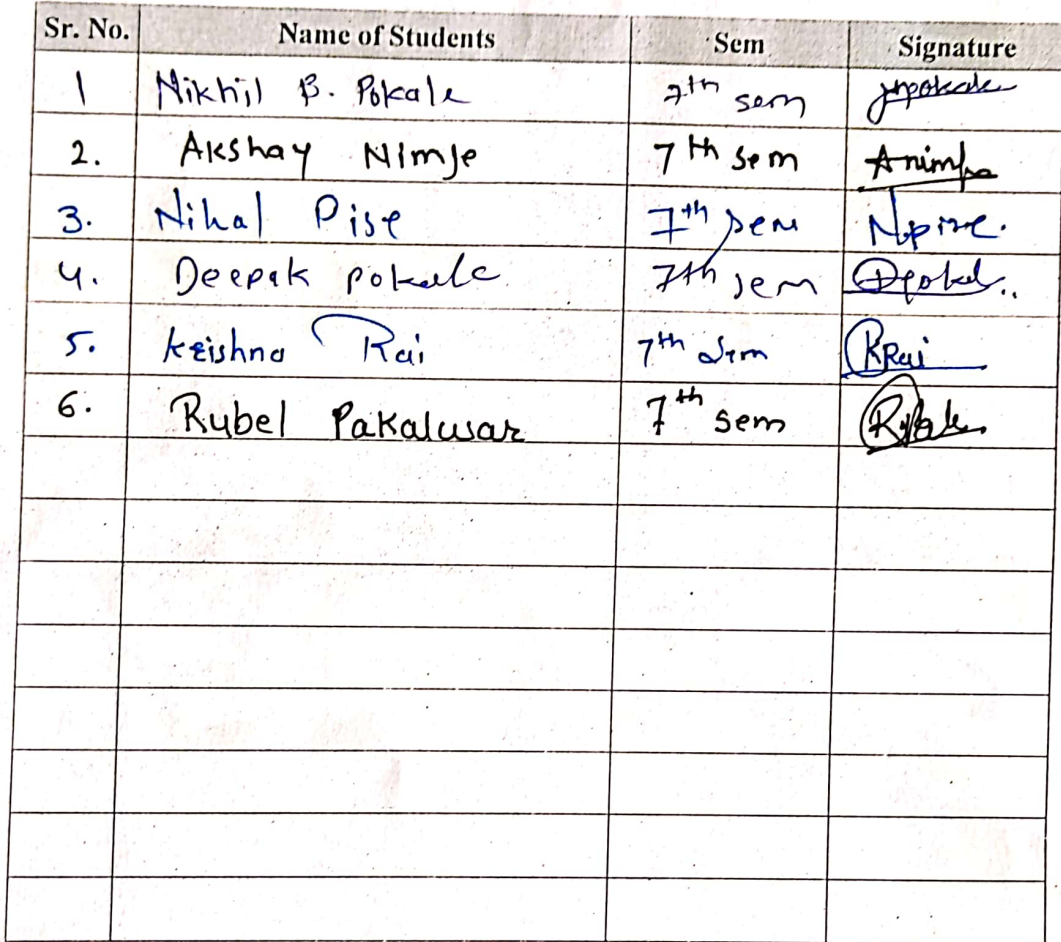 Sr. No. Name of Students Sem Signature
1 Nikhil B. Pokale 7th sem
2. Akshay Nimje 7th sem Animje
3. Nihal Pise 7th sem Npise.
4. Deepak pokale 7th sem Dpokal..
5. Krishna Rai 7th Sem KRai
6. Rubel Pakalwar 7th sem